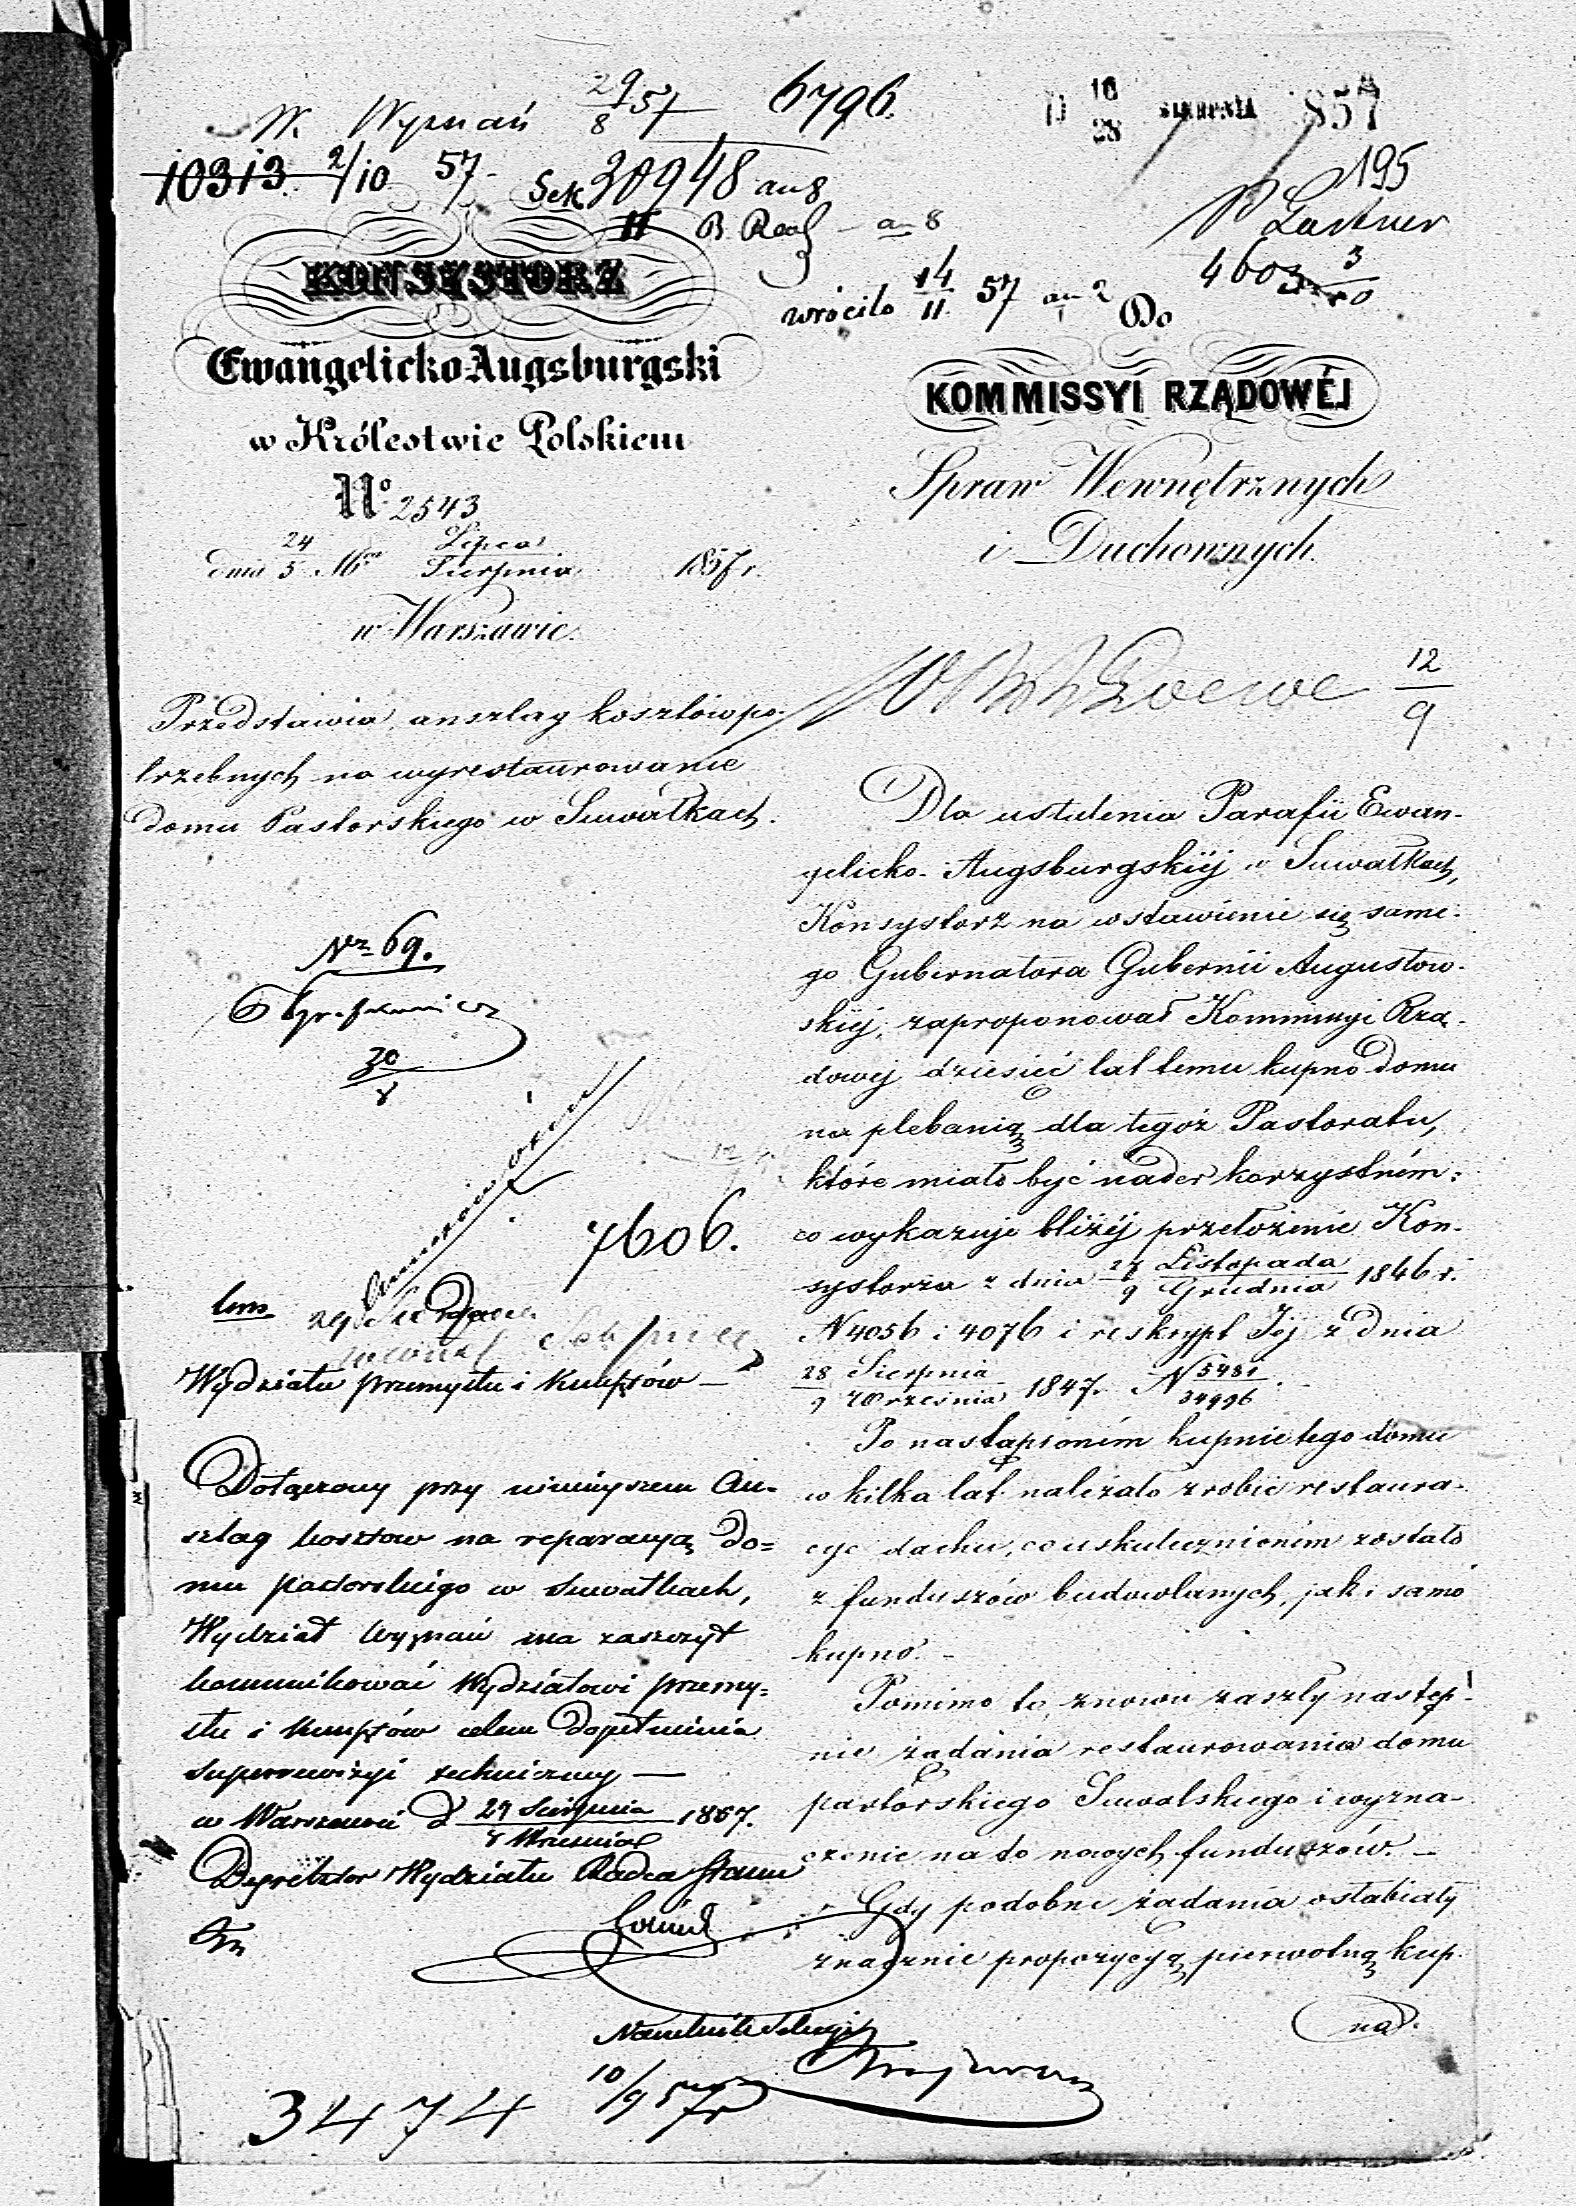 W. Wyznań 29/8 57 6796.
D 16/28 SIERPNIA 1857
10313. 2/10 57. Sek 30948 au 8
195
II B. Real au 8
P Lastner
wróciło 14/11 57 au 2
4603
KONSYSTORZ
Ewangelicko-Augsburgski
w Królestwie Polskiem
No 2543
dnia 24/5 Mca Lipca/Sierpnia 1857 r.
w Warszawie.
Przedstawia anszlag kosztów po-
trzebnych na wyrestaurowanie
domu Pastorskiego w Suwałkach.
Nr 69.
30/8
7606.
Wydziału przemysłu i kunsztów —
Dołączony przy niniejszem An-
szlag kosztow na reparacyą do=
mu pastorskiego w Suwałkach,
Wydział Wyznań ma zaszczyt
kommunikować Wydziałowi przemy=
słu i kunsztów celem dopełnienia
superrewizyi techniczney —
w Warszawie d 29 Sierpnia/8 Września 1857.
Dyrektor Wydziału Radca Stanu
Naczelnik Sekcyi
10/9 57
3474
Do
KOMMISSYI RZĄDOWÉJ
Spraw Wewnętrznych
i Duchownych.
12/9
Dla ustalenia Parafii Ewan-
gelicko-Augsburgskiéj w Suwałkach,
Konsystorz na wstawienie się same-
go Gubernatora Gubernii Augustow-
skiéj, zaproponował Kommissyi Rzą-
dowej dziesięć lat temu kupno domu
na plebanią dla tegoż Pastoratu,
które miało być nader korzystném:
co wykazuje bliżéj przełożenie Kon-
systorza z dnia 27 Listopada/9 Grudnia 1846 r.
N 4056 i 4076 i reskrypt Jéj z dnia
28 Sierpnia/9 Września 1847. N 5481/34996.
Po nastąpioném kupnie tego domu
w kilka lat należało zrobić restaura-
cye dachu, co uskutecznioném zostało
z funduszów budowlanych, jak i samo
kupno. —
Pomimo to, znowu zaszły następ-
nie żądania restaurowania domu
pastorskiego Suwalskiego i wyzna-
czenie na to nowych funduszów. —
Gdy podobne żądania osłabiały
znacznie propozycyą pierwotną kup-
na